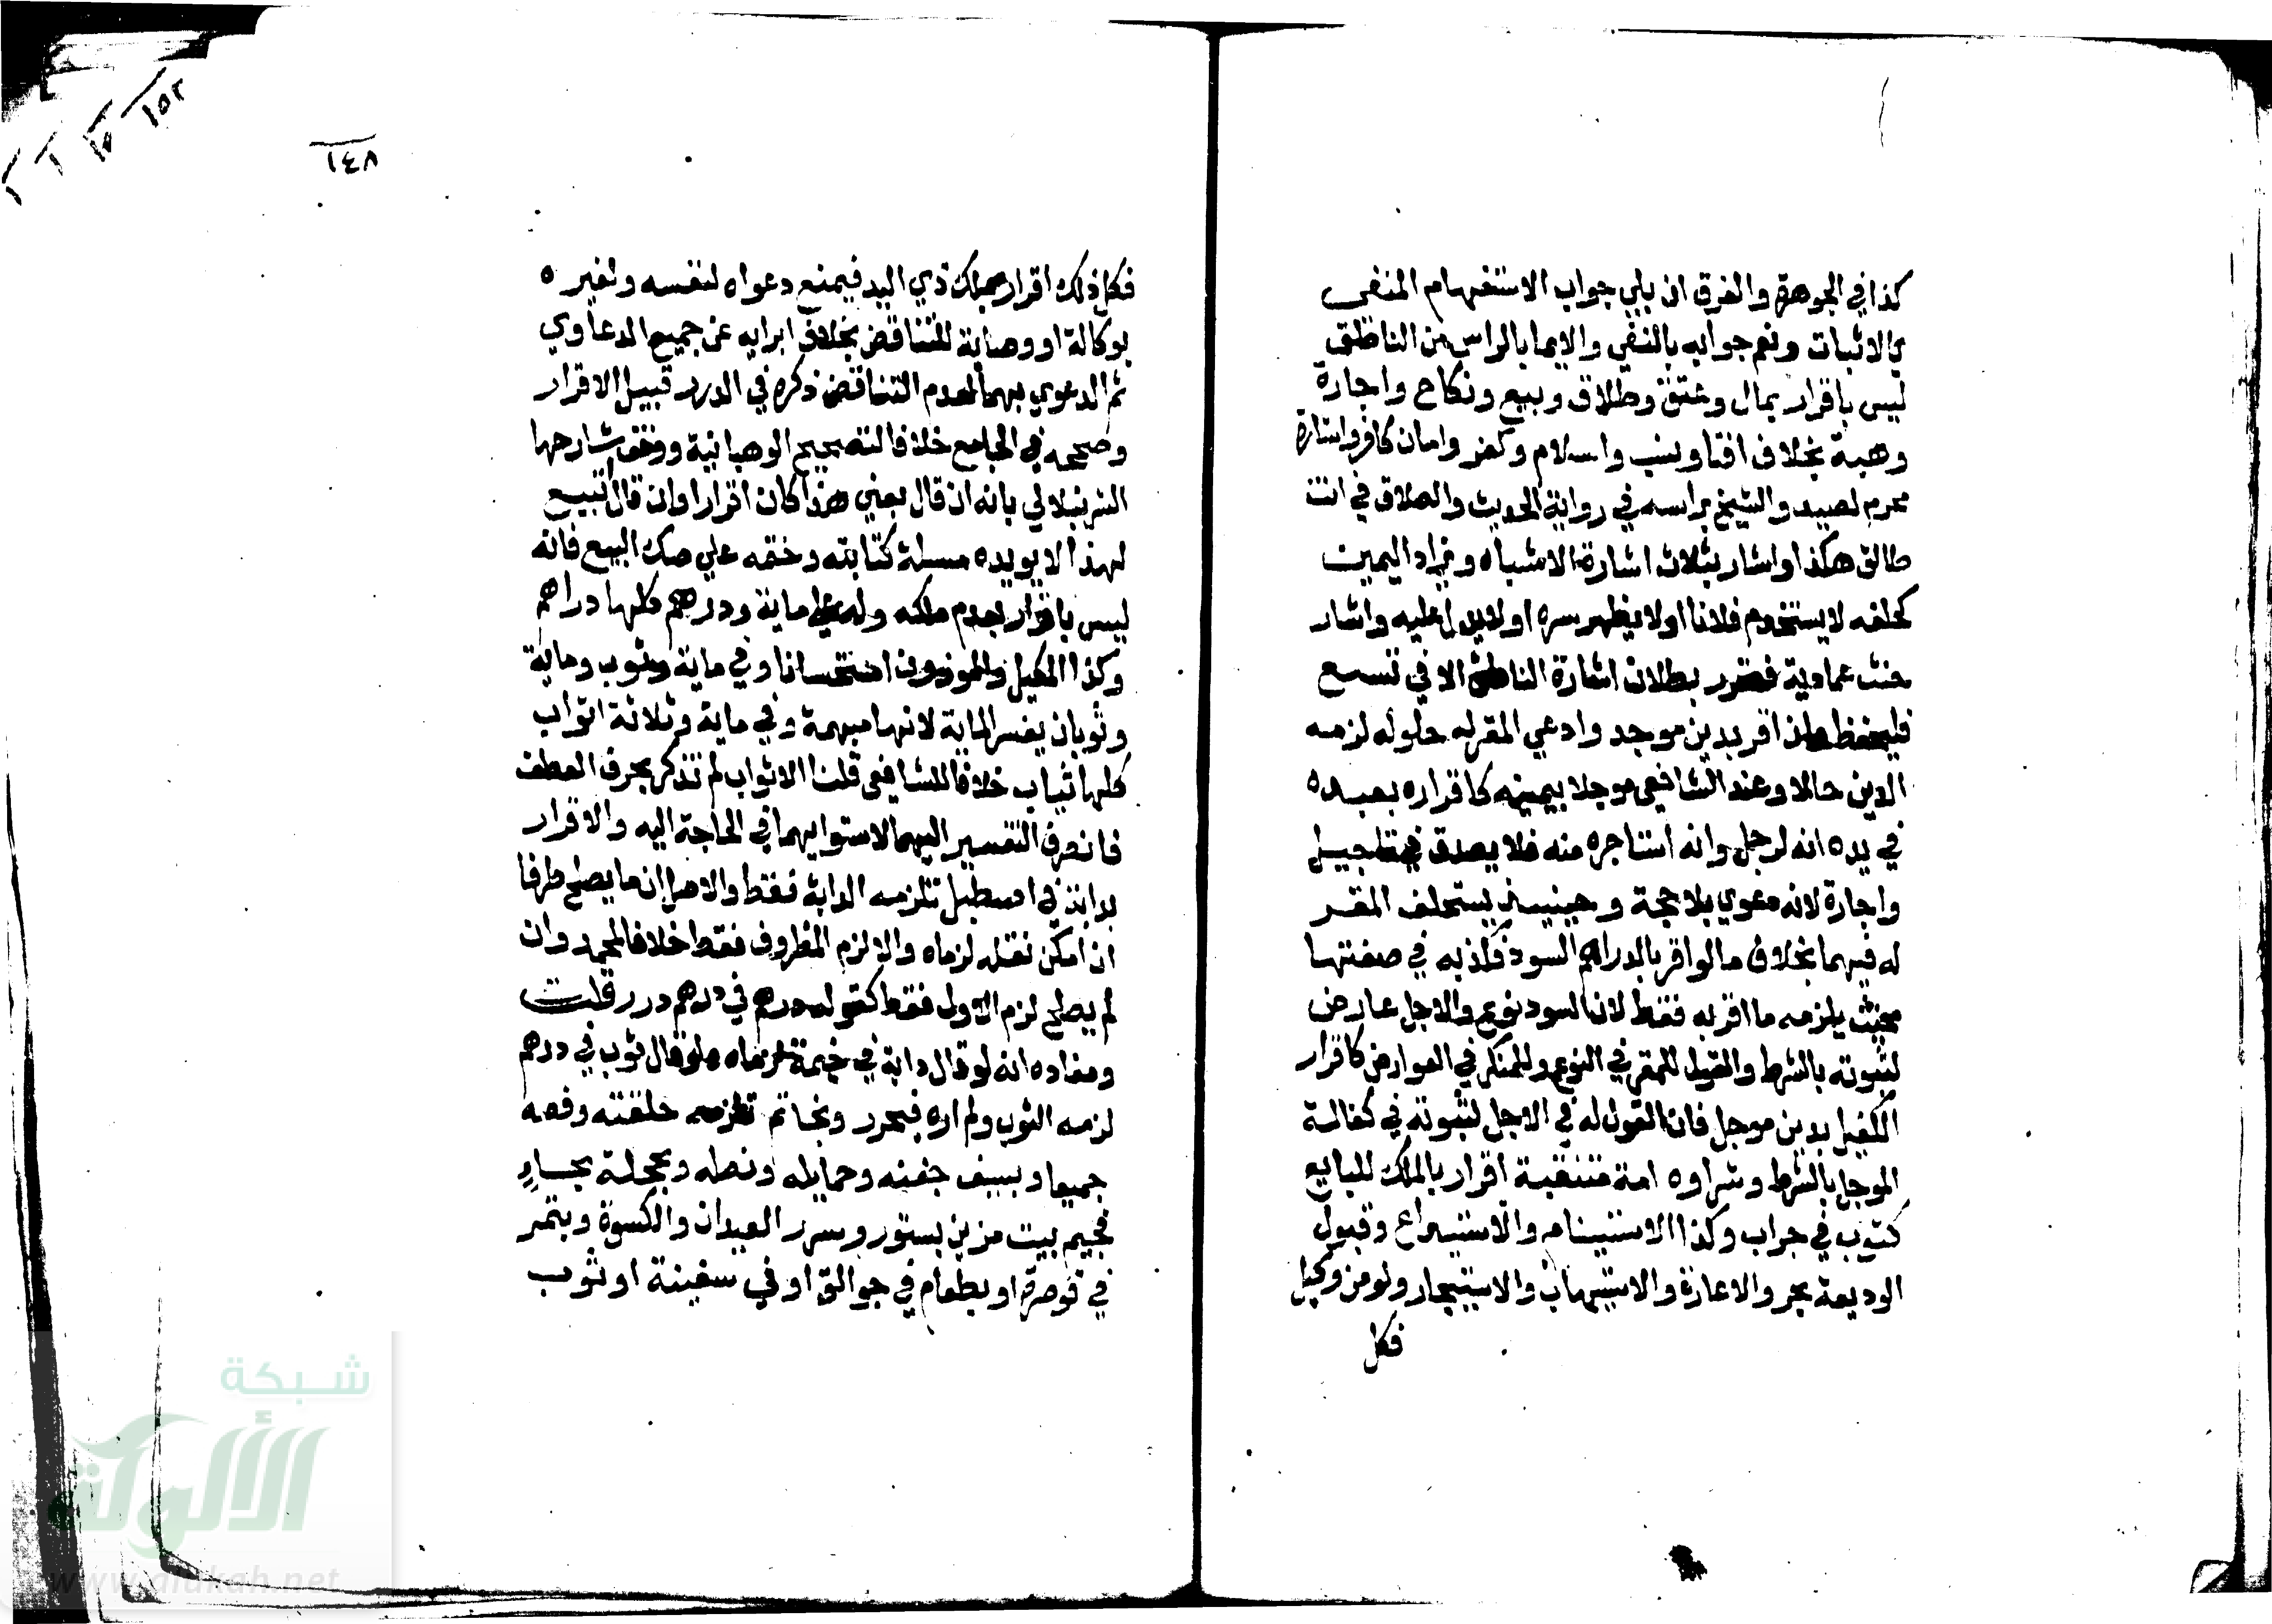 كذا في الجوهرة والفرق ان بلي جواب الاستفهام المنفى
بالاثبات ونعم جوابه بالنفي والايما بالراس من الناطق
ليس باقرار بمال وعتق وطلاق وبيع ونكاح واجارة
وهبة بخلاف افتا ونسب واسلام وكفر وامان كافر واشارة
محرم لصيد والشيخ براسه في رواية الحديث والطلاق في انت
طالق هكذا واشار بثلاث اشارة الاشباه ويزاد اليمين
كحلفه لا يستخدم فلانا اولا يظهر سره اولا يدل عليه واشار
حنث عمادية فتحرر بطلان اشارة الناطق الا في تسع
فليحفظ وان اقر بدين موجد وادعي المقر له حلوله لزمه
الدين حالا وعند الشافعي موجلا بيمينه كاقراره بعبده
في يده انه لرجل وانه استاجره منه فلا يصدق في تاجيل
واجارة لانه دعوي بلا حجة وحينيذ يستحلف المقر
له فيهما بخلاف ما لو اقر بالدراهم السود فكذبه في صفتها
حيث يلزمه ما اقر به فقط لان السود نوع والاجل عارض
لثبوته بالشرط والقول للمقر في النوع وللمنكر في العوارض كاقرار
الكفيل بدين موجل فان القول له في الاجل لثبوته في كفالة
الموجل بالشرط وشراوه امة متنقبة اقرار بالملك للبايع
كثوب في جراب وكذا الاستيام والاستيداع وقبول
الوديعة بحر والاعارة والاستيهاب والاستيجار ولو من وكيل
فكل
١٥٢
١٤٨
فكل ذلك اقرار بملك ذي اليد فيمنع دعواه لنفسه ولغيره
بوكالة او وصاية للتناقض بخلاف ابرايه عن جميع الدعاوي
ثم الدعوي بهما لعدم التناقض ذكره في الدرر قبيل الاقرار
وصححه في الجامع خلافا لتصحيح الوهبانية ووفق شارحها
الشرنبلالي بانه ان قال بعني هذا كان اقرارا وان قال اتبيع
لهذا لا يويده مسيلة كتابته وختمه علي صك البيع فانه
ليس باقرار بعدم ملكه وله علي ماية ودرهم كلها دراهم
وكذا المكيل والموزون استحسانا وفي ماية وثوب وماية
وثوبان يفسر الماية لانها مبهمة وفي ماية وثلاثة اثواب
كلها ثياب خلافا للشافعي قلنا الاثواب لم تذكر بحرف العطف
فانصرف التفسير اليهما لاستوايهما في الحاجة اليه والاقرار
بدابة في اصطبل تلزمه الدابة فقط والاصل ان ما يصلح ظرفا
ان امكن نقله لزماه والا لزم المظروف فقط خلافا لمحمد وان
لم يصلح لزم الاول فقط كقوله درهم في درهم درر قلت
ومفاده انه لو قال دابة في خيمة لزماه ولو قال ثوب في درهم
لزمه الثوب ولم اره فيحرر وبخاتم تلزمه حلقته وفصه
جميعا وبسيف جفنه وحمايله ونصله وبحجلة بحساء
فجيم بيت مزين بستور وسرر العيدان والكسوة وبتمر
في قوصرة او بطعام في جوالق او في سفينة او ثوب
شبكة
الألوكة
www.alukah.net